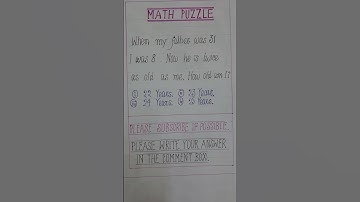 MATH PUZZLE
When my father was 31
I was 8. Now he is twice
as old as me. How old am I?
22 Years.
24 Years.
PLEASE SUBSCRIBE IF POSSIBLE
PLEASE WRITE YOUR ANSWER
IN THE COMMENT BOX.